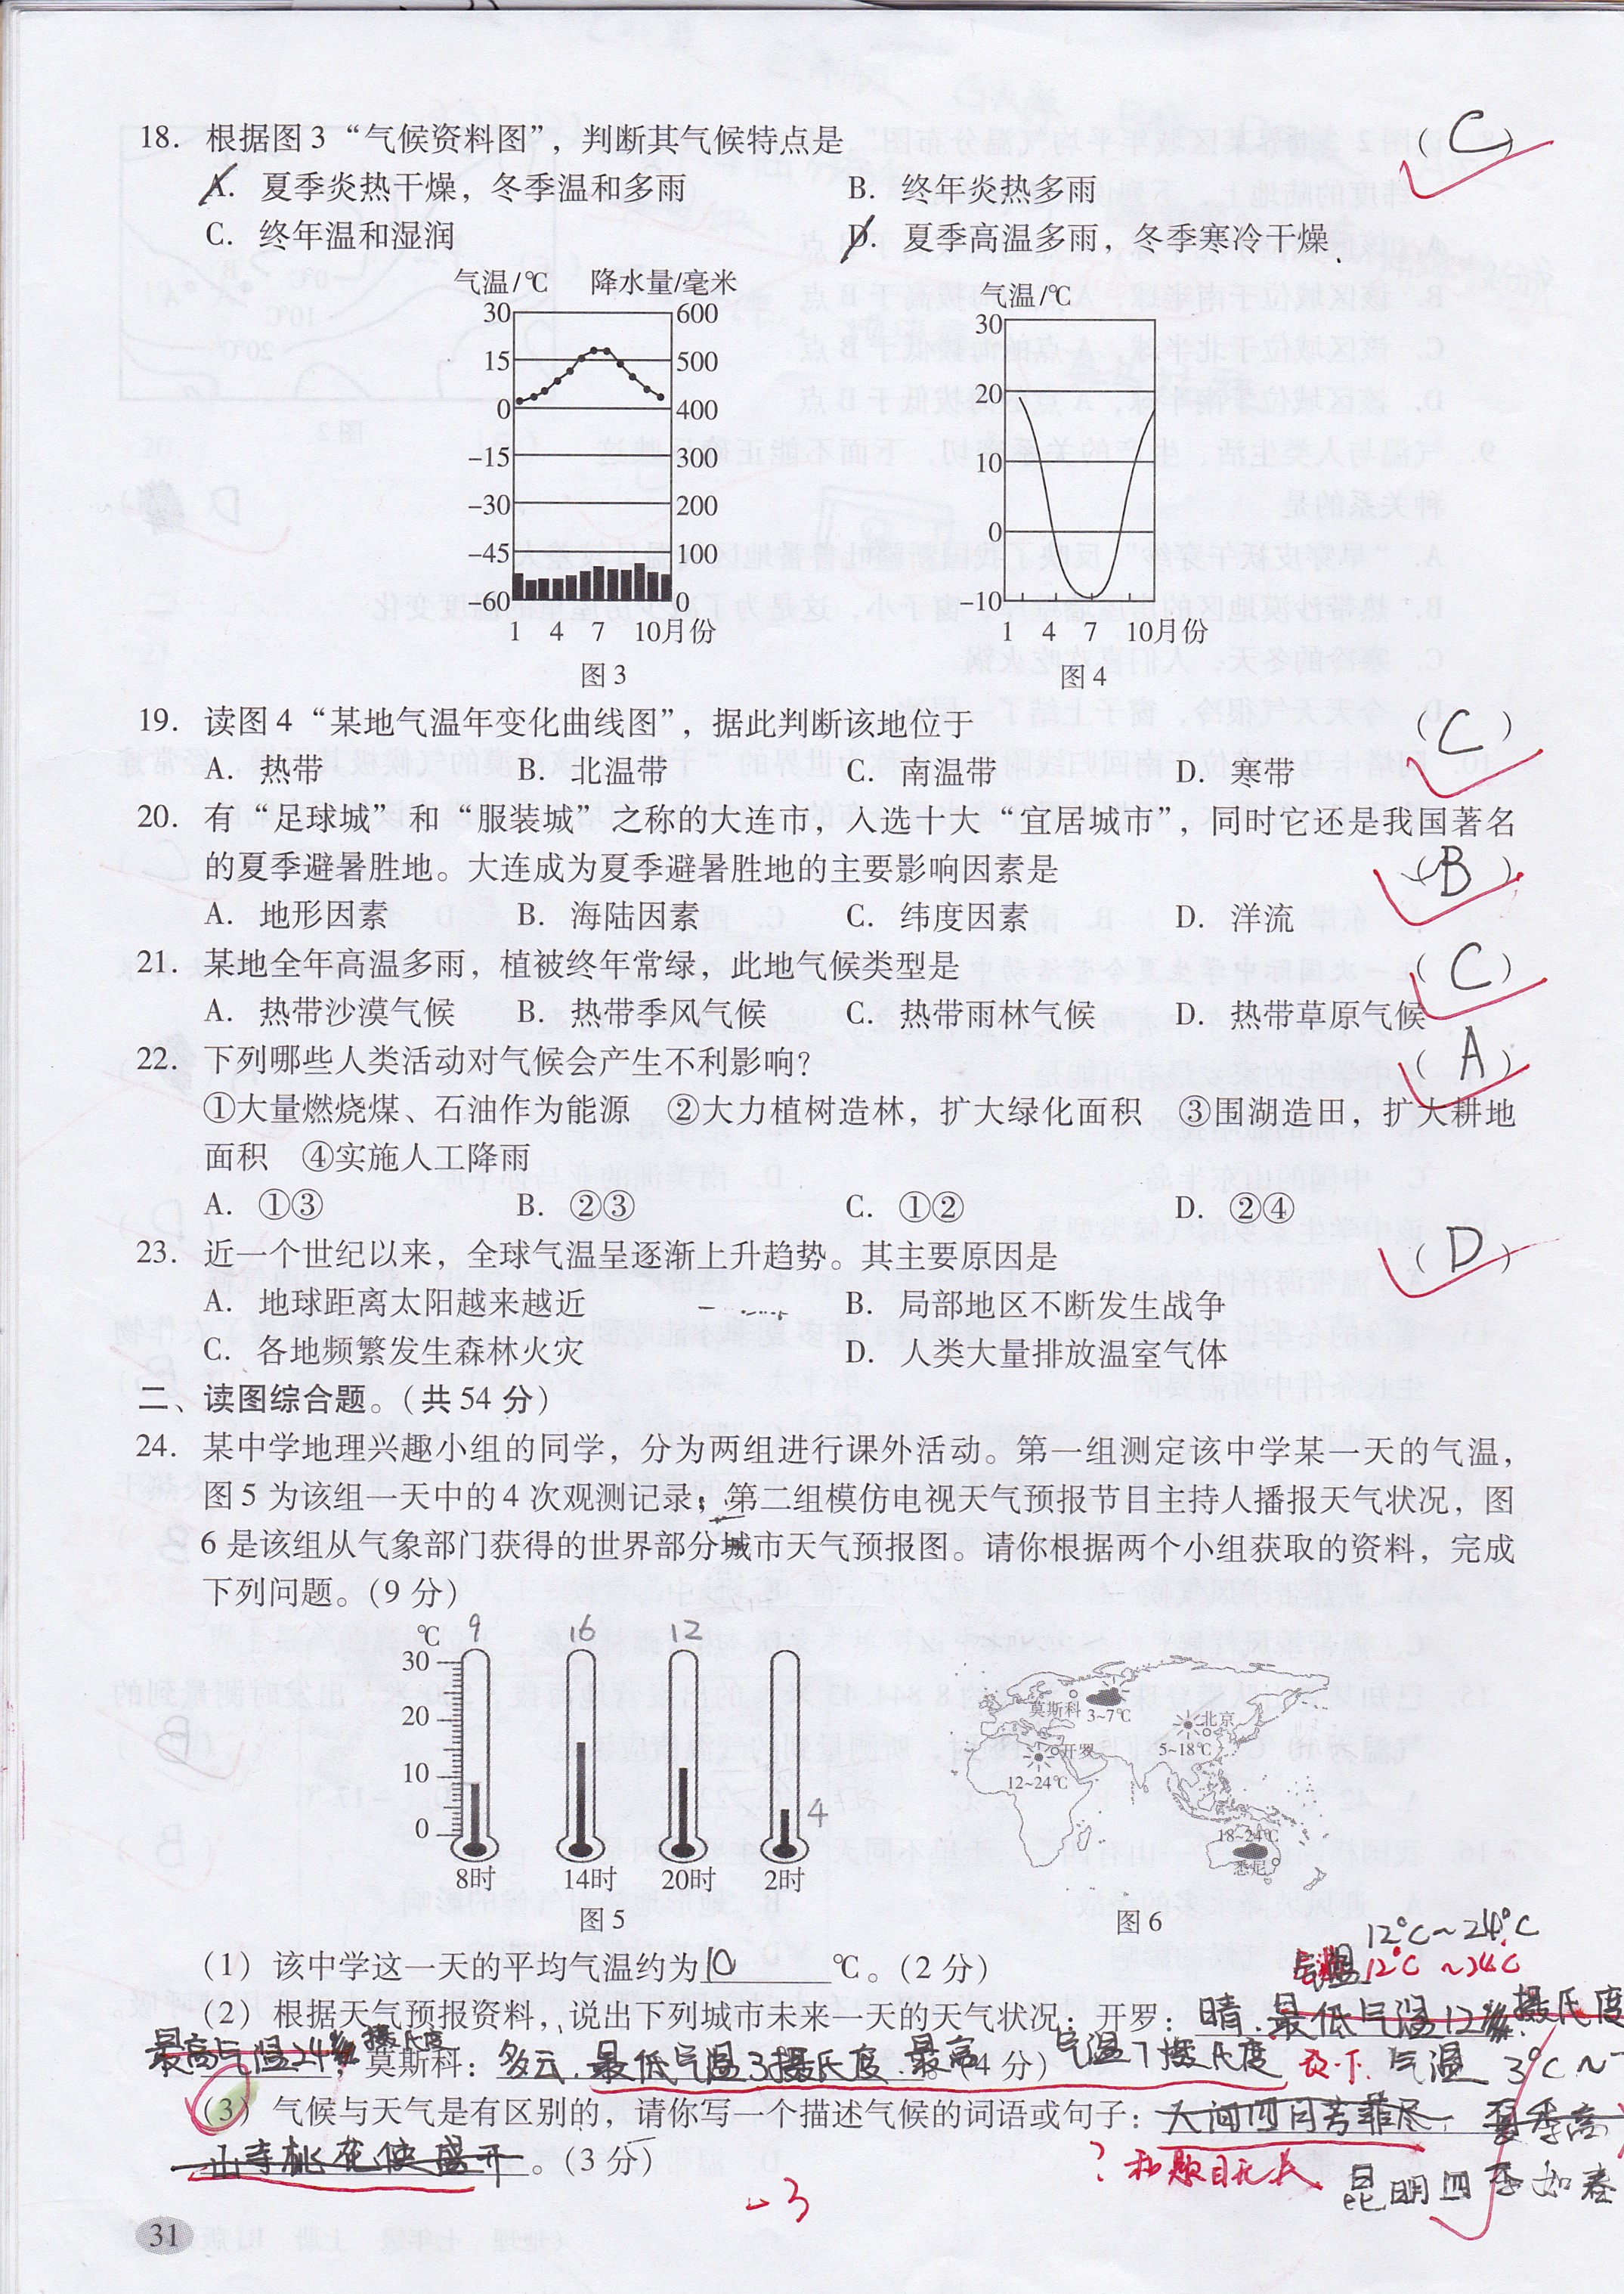 18. 根据图3“气候资料图”，判断其气候特点是 （ C ）
A. 夏季炎热干燥，冬季温和多雨 B. 终年炎热多雨
C. 终年温和湿润 D. 夏季高温多雨，冬季寒冷干燥
气温/℃ 降水量/毫米 气温/℃
30 600 30
15 500 20
0 400 10
-15 300 0
-30 200 -10
-45 100
-60 0
1 4 7 10月份 1 4 7 10月份
图3 图4
19. 读图4“某地气温年变化曲线图”，据此判断该地位于 （ C ）
A. 热带 B. 北温带 C. 南温带 D. 寒带
20. 有“足球城”和“服装城”之称的大连市，入选十大“宜居城市”，同时它还是我国著名
的夏季避暑胜地。大连成为夏季避暑胜地的主要影响因素是 （ B ）
A. 地形因素 B. 海陆因素 C. 纬度因素 D. 洋流
21. 某地全年高温多雨，植被终年常绿，此地气候类型是 （ C ）
A. 热带沙漠气候 B. 热带季风气候 C. 热带雨林气候 D. 热带草原气候
22. 下列哪些人类活动对气候会产生不利影响？ （ A ）
①大量燃烧煤、石油作为能源 ②大力植树造林，扩大绿化面积 ③围湖造田，扩大耕地
面积 ④实施人工降雨
A. ①③ B. ②③ C. ①② D. ②④
23. 近一个世纪以来，全球气温呈逐渐上升趋势。其主要原因是 （ D ）
A. 地球距离太阳越来越近 B. 局部地区不断发生战争
C. 各地频繁发生森林火灾 D. 人类大量排放温室气体
二、读图综合题。（共54分）
24. 某中学地理兴趣小组的同学，分为两组进行课外活动。第一组测定该中学某一天的气温，
图5为该组一天中的4次观测记录；第二组模仿电视天气预报节目主持人播报天气状况，图
6是该组从气象部门获得的世界部分城市天气预报图。请你根据两个小组获取的资料，完成
下列问题。（9分）
℃ 9 16 12 4
30
20
10
0
8时 14时 20时 2时
图5
莫斯科 3~7℃
北京
5~18℃
开罗
12~24℃
18~24℃
悉尼
图6
12℃~24℃
气温12℃~24℃
（1）该中学这一天的平均气温约为10℃。（2分）
（2）根据天气预报资料，说出下列城市未来一天的天气状况：开罗：晴.最低气温12摄氏度
最高气温24摄氏度，莫斯科：多云.最低气温3摄氏度.最高气温7摄氏度。（4分） 气温 3℃~
（3）气候与天气是有区别的，请你写一个描述气候的词语或句子：人间四月芳菲尽, 夏季高
山寺桃花使盛开。（3分） ？和题目无关 昆明四季如春
-3
31